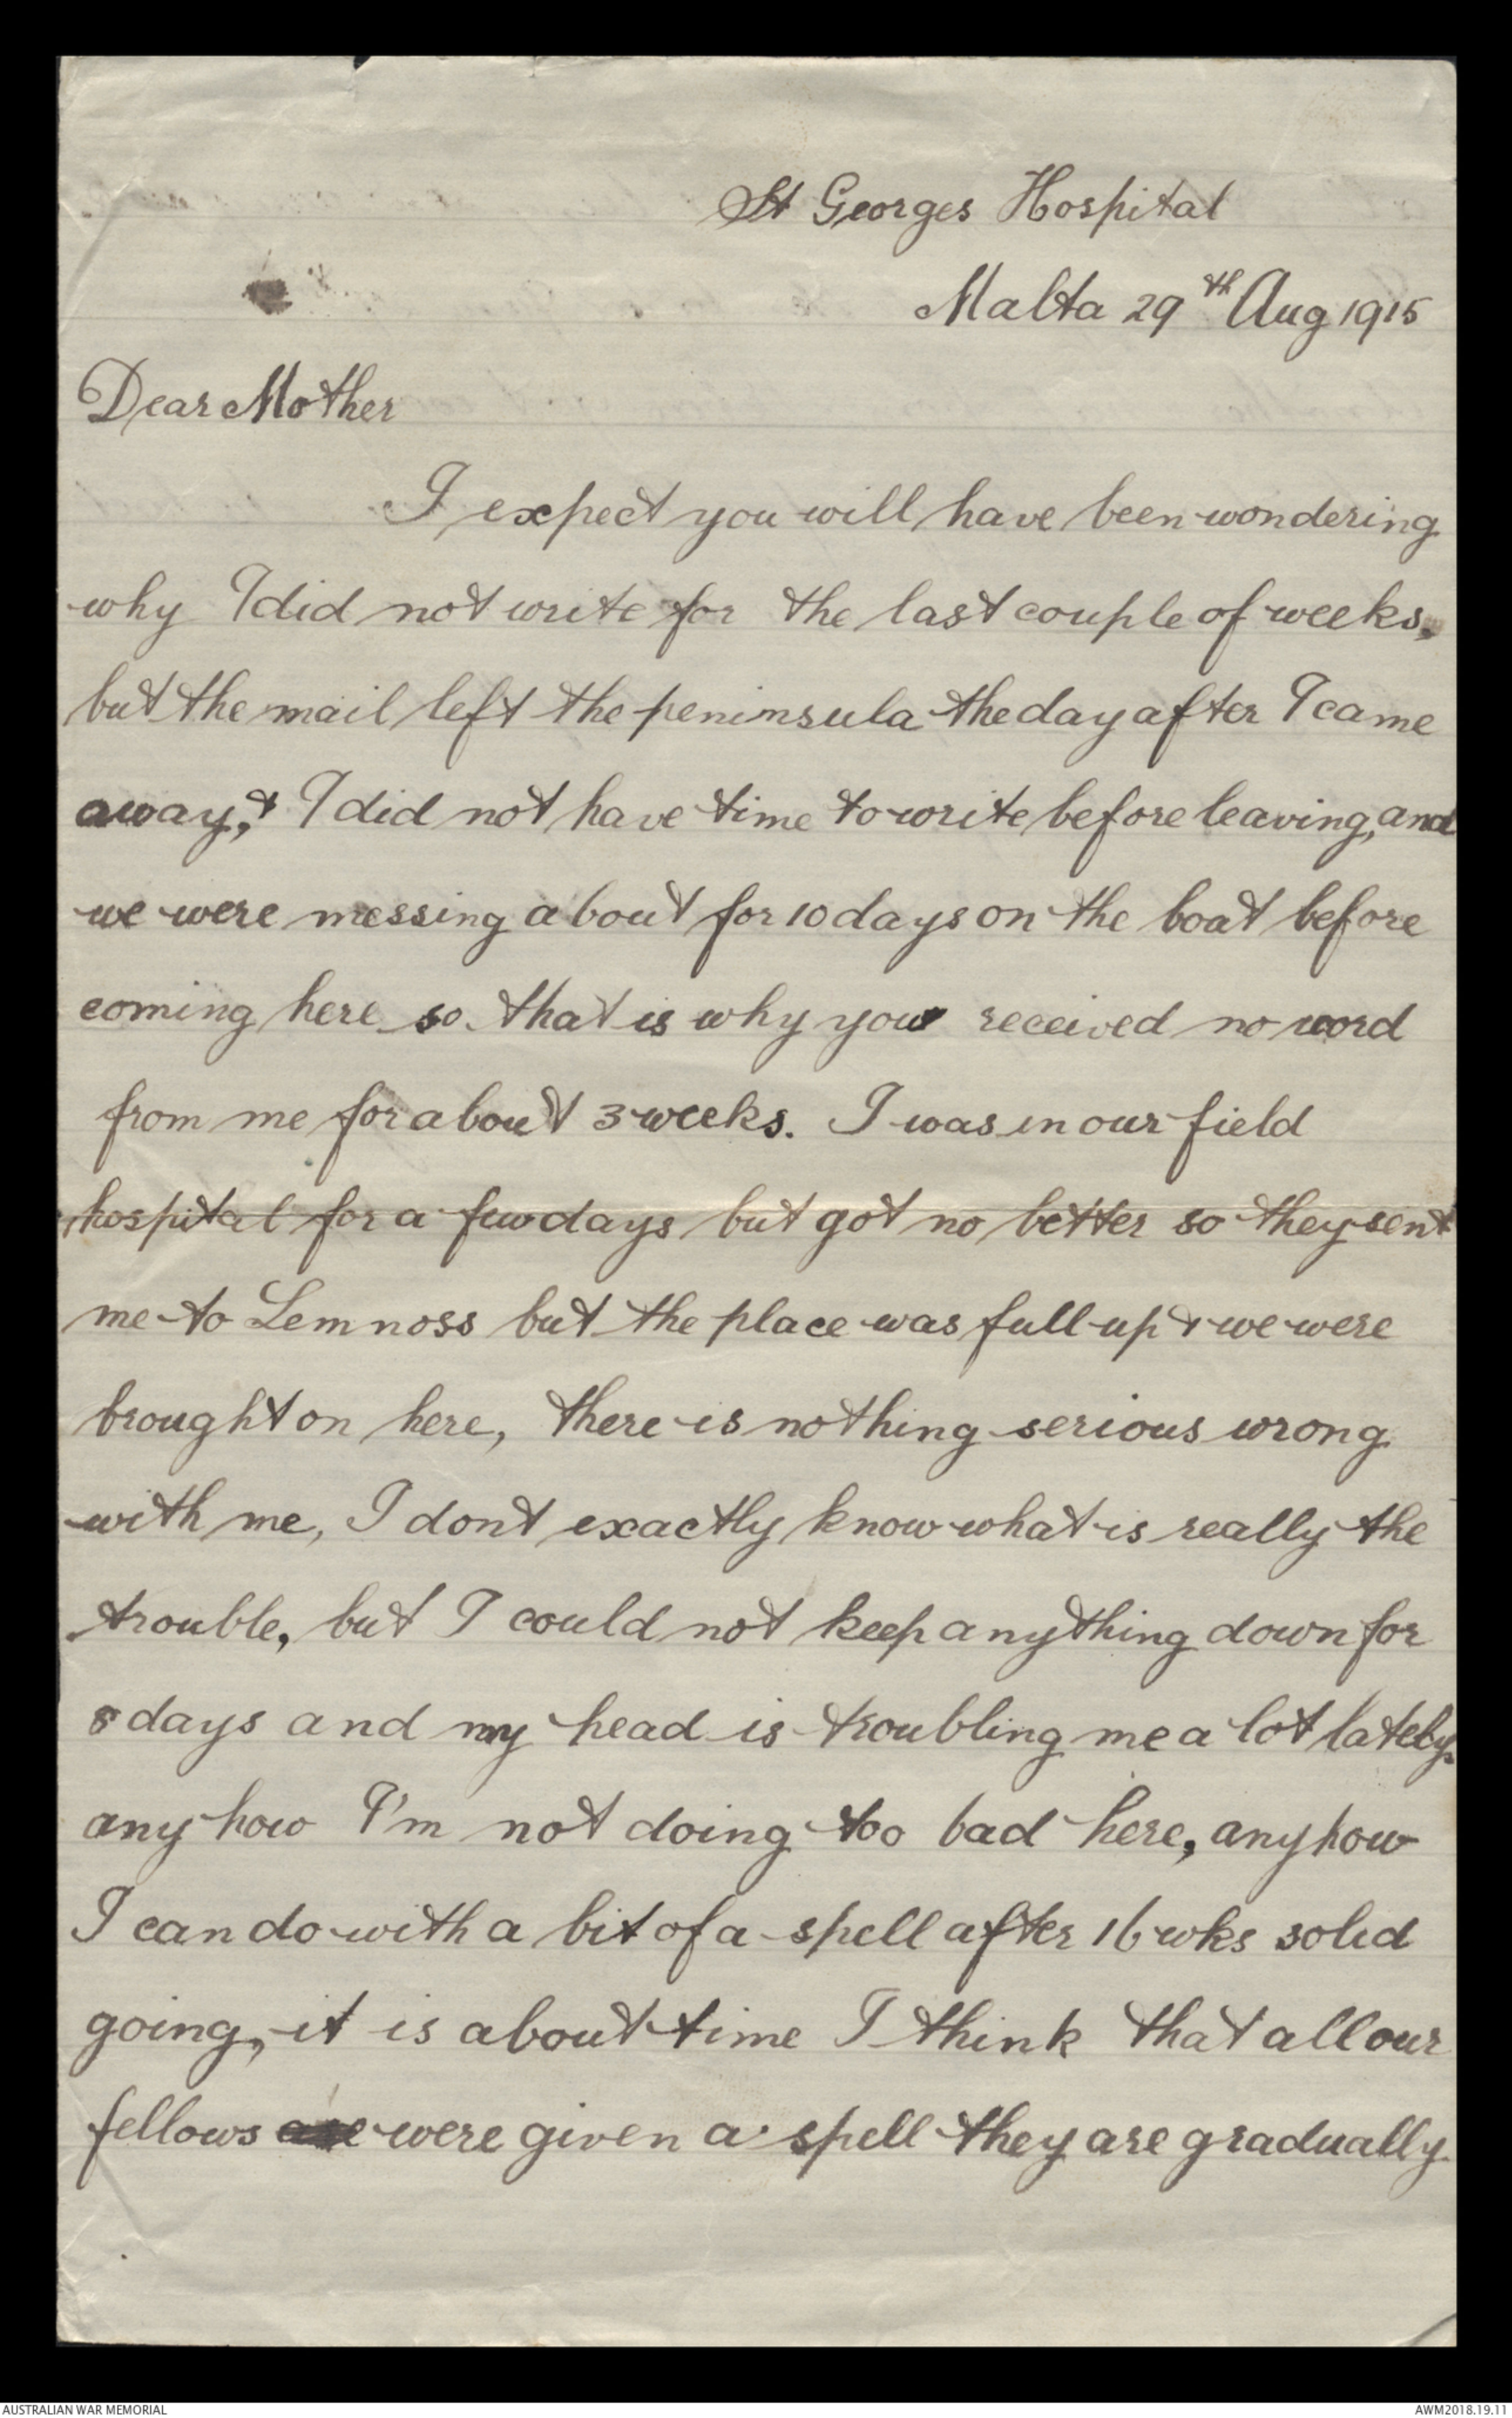 St Georges Hospital
Malta 29th Aug 1915
Dear Mother
I expect you will have been wondering
why I did not write for the last couple of weeks,
but the mail left the peninsula the day after I came
away, & I did not have time to write before leaving, and
we were messing about for 10 days on the boat before
coming here so that is why you received no word
from me for about 3 weeks. I was in our field
hospital for a few days but got no better so they sent
me to Lemnoss but the place was full up & we were
brought on here, there is nothing serious wrong
with me, I dont exactly know what is really the
trouble, but I could not keep anything down for
8 days and my head is troubling me a lot lately.
any how I'm not doing too bad here, anyhow
I can do with a bit of a spell after 16 wks solid
going, it is about time I think that all our
fellows were given a spell they are gradually
AUSTRALIAN WAR MEMORIAL
AWM2018.19.11